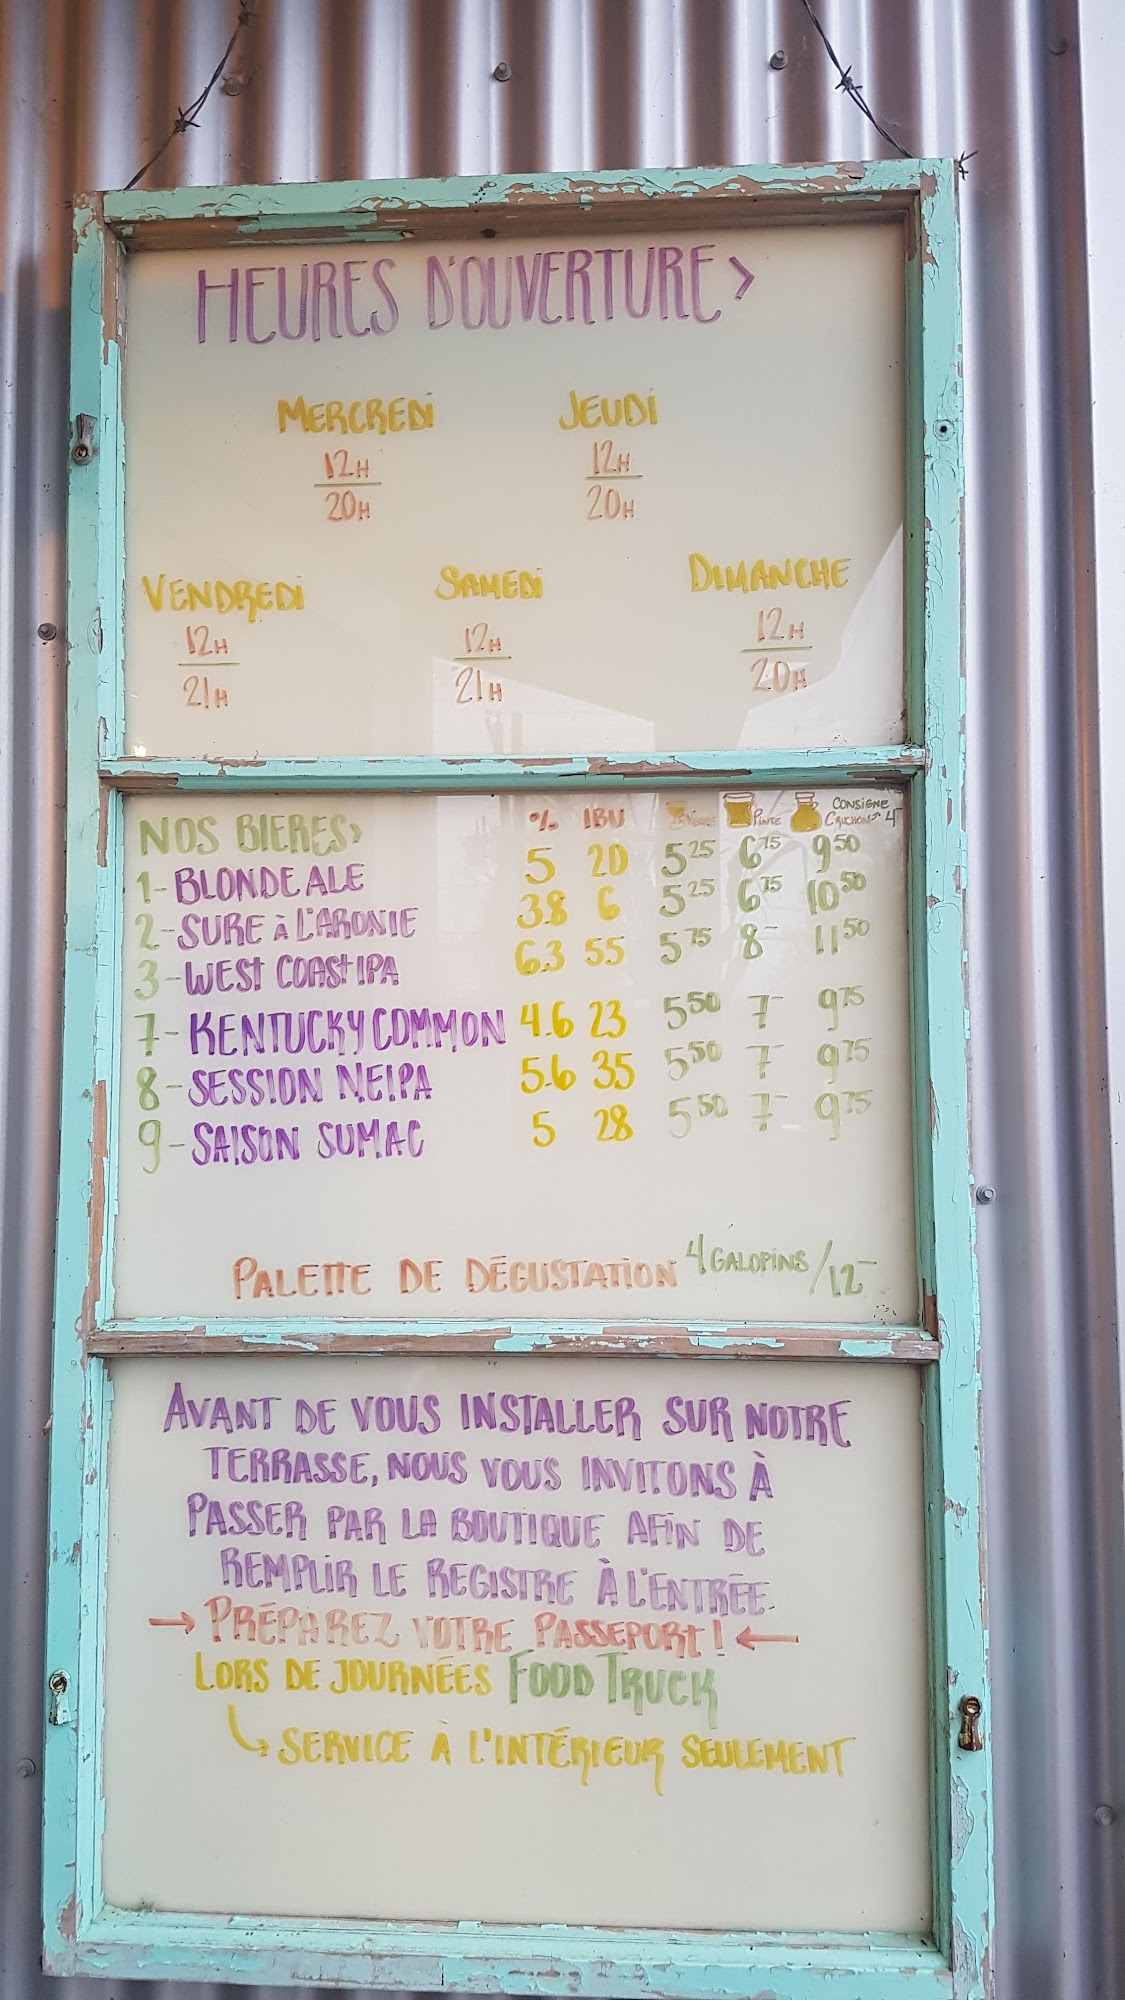 HEURES D'OUVERTURE >
MERCREDI JEUDI
12H 12H
20H 20H
VENDREDI SAMEDI DIMANCHE
12H 12H 12H
21H 21H 20H
NOS BIERES > % IBU VERRE PINTE CONSIGNE CRUCHON 4-
1- BLONDE ALE 5 20 5 25 6 75 9 50
2- SURE À L'ARONIE 3.8 6 5 25 6 75 10 50
3- WEST COAST IPA 6.3 55 5 75 8- 11 50
7- KENTUCKY COMMON 4.6 23 5 50 7- 9 75
8- SESSION NEIPA 5.6 35 5 50 7- 9 75
9- SAISON SUMAC 5 28 5 50 7- 9 75
PALETTE DE DÉGUSTATION 4 GALOPINS / 12-
AVANT DE VOUS INSTALLER SUR NOTRE
TERRASSE, NOUS VOUS INVITONS À
PASSER PAR LA BOUTIQUE AFIN DE
REMPLIR LE REGISTRE À L'ENTRÉE.
→ PRÉPAREZ VOTRE PASSEPORT! ←
LORS DE JOURNÉES FOOD TRUCK
↳ SERVICE À L'INTÉRIEUR SEULEMENT